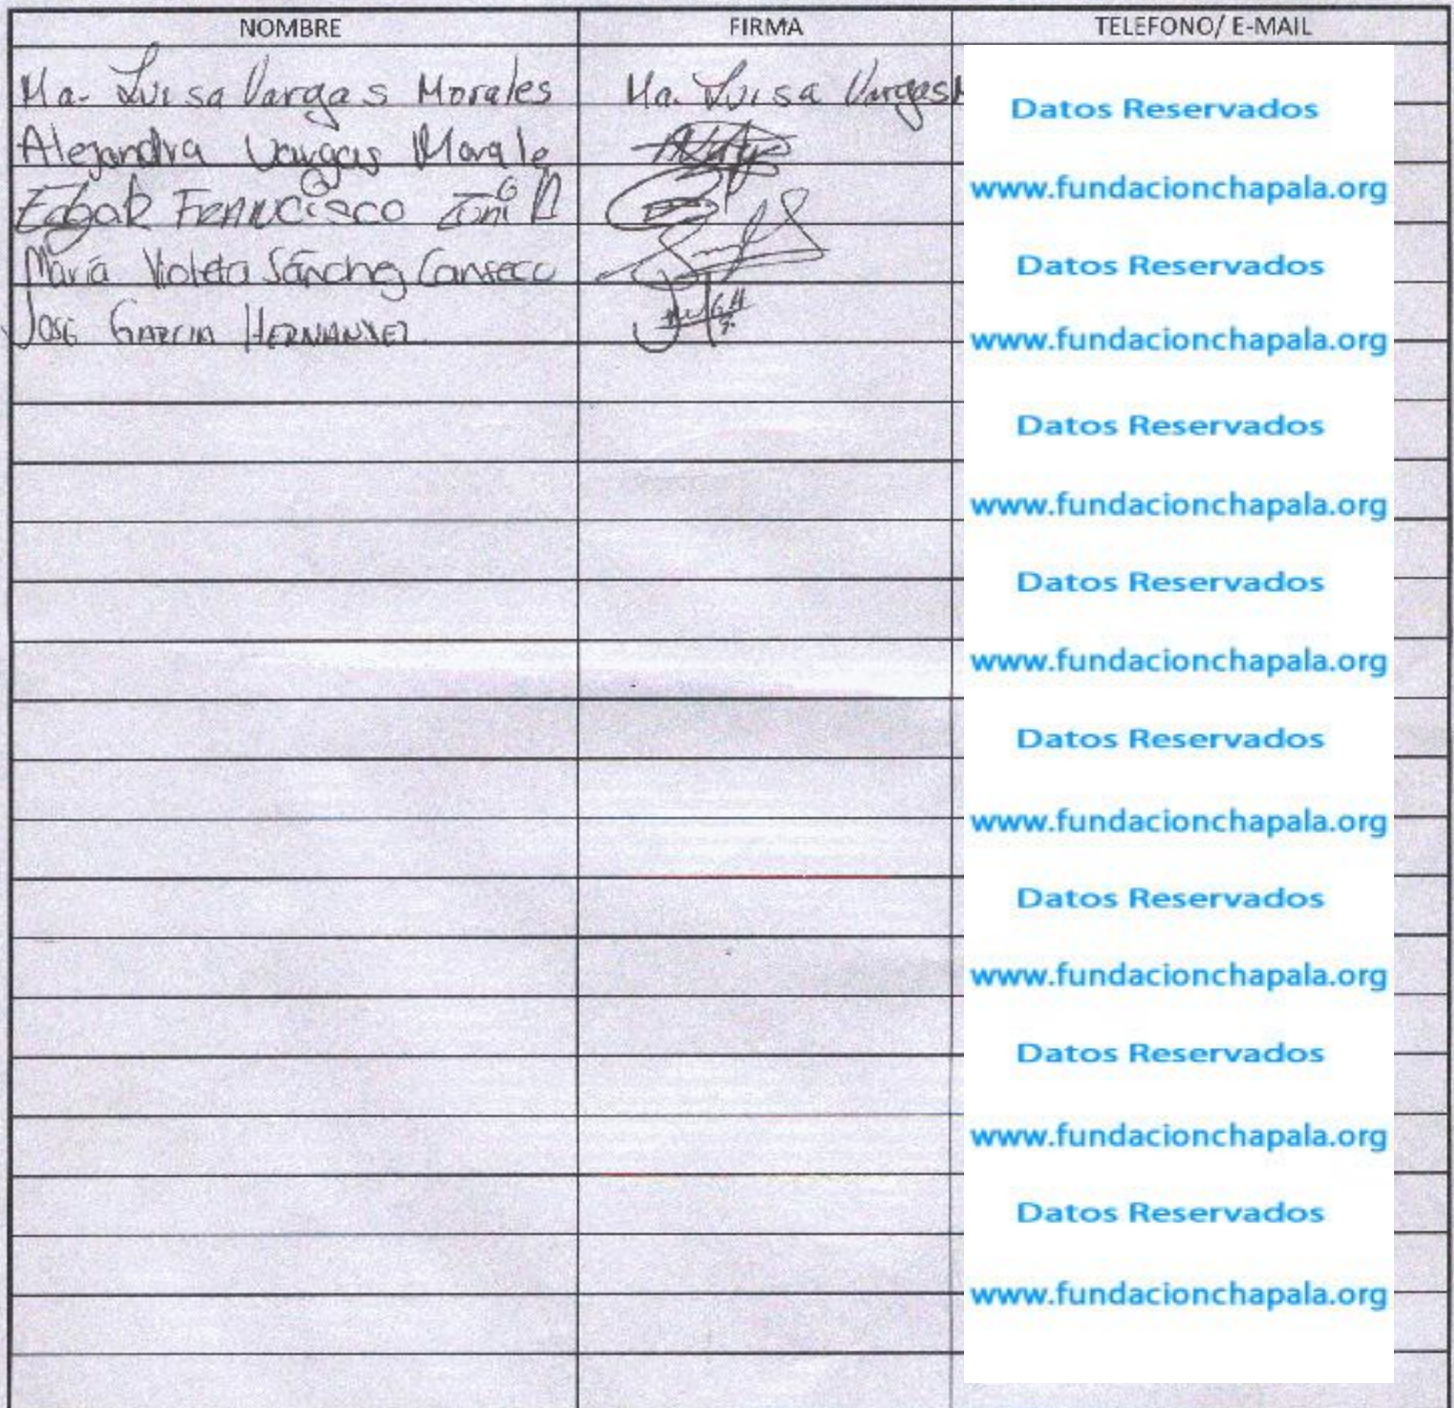 NOMBRE FIRMA TELEFONO/ E-MAIL
Ma. Luisa Vargas Morales Ma. Luisa Vargas M
Datos Reservados
Alejandra Vargas Morale
www.fundacionchapala.org
Edgar Francisco
María Violeta Sánchez Canseco
Datos Reservados
JOSE GARCIA HERNANDEZ
www.fundacionchapala.org
Datos Reservados
www.fundacionchapala.org
Datos Reservados
www.fundacionchapala.org
Datos Reservados
www.fundacionchapala.org
Datos Reservados
www.fundacionchapala.org
Datos Reservados
www.fundacionchapala.org
Datos Reservados
www.fundacionchapala.org